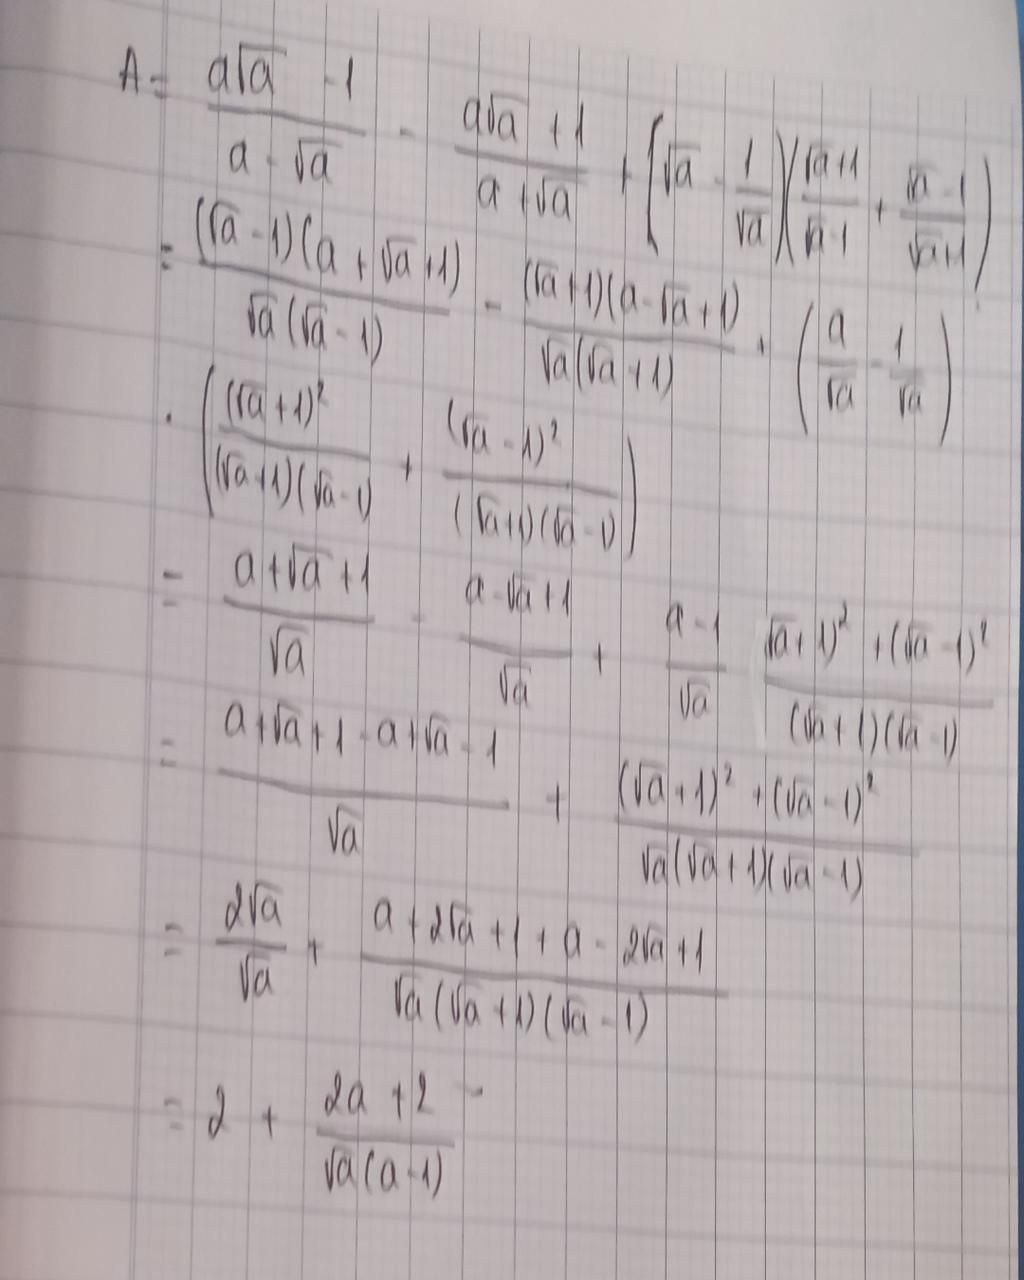 A = \frac{a\sqrt{a} - 1}{a - \sqrt{a}} - \frac{a\sqrt{a} + 1}{a + \sqrt{a}} + \left(\sqrt{a} - \frac{1}{\sqrt{a}}\right)\left(\frac{\sqrt{a}+1}{\sqrt{a}-1} + \frac{\sqrt{a}-1}{\sqrt{a}+1}\right)
= \frac{(\sqrt{a}-1)(a+\sqrt{a}+1)}{\sqrt{a}(\sqrt{a}-1)} - \frac{(\sqrt{a}+1)(a-\sqrt{a}+1)}{\sqrt{a}(\sqrt{a}+1)} + \left(\frac{a}{\sqrt{a}} - \frac{1}{\sqrt{a}}\right)
\cdot \left(\frac{(\sqrt{a}+1)^2}{(\sqrt{a}+1)(\sqrt{a}-1)} + \frac{(\sqrt{a}-1)^2}{(\sqrt{a}+1)(\sqrt{a}-1)}\right)
= \frac{a+\sqrt{a}+1}{\sqrt{a}} - \frac{a-\sqrt{a}+1}{\sqrt{a}} + \frac{a-1}{\sqrt{a}} \frac{(\sqrt{a}+1)^2+(\sqrt{a}-1)^2}{(\sqrt{a}+1)(\sqrt{a}-1)}
= \frac{a+\sqrt{a}+1-a+\sqrt{a}-1}{\sqrt{a}} + \frac{(\sqrt{a}+1)^2+(\sqrt{a}-1)^2}{\sqrt{a}(\sqrt{a}+1)(\sqrt{a}-1)}
= \frac{2\sqrt{a}}{\sqrt{a}} + \frac{a+2\sqrt{a}+1+a-2\sqrt{a}+1}{\sqrt{a}(\sqrt{a}+1)(\sqrt{a}-1)}
= 2 + \frac{2a+2}{\sqrt{a}(a-1)} -